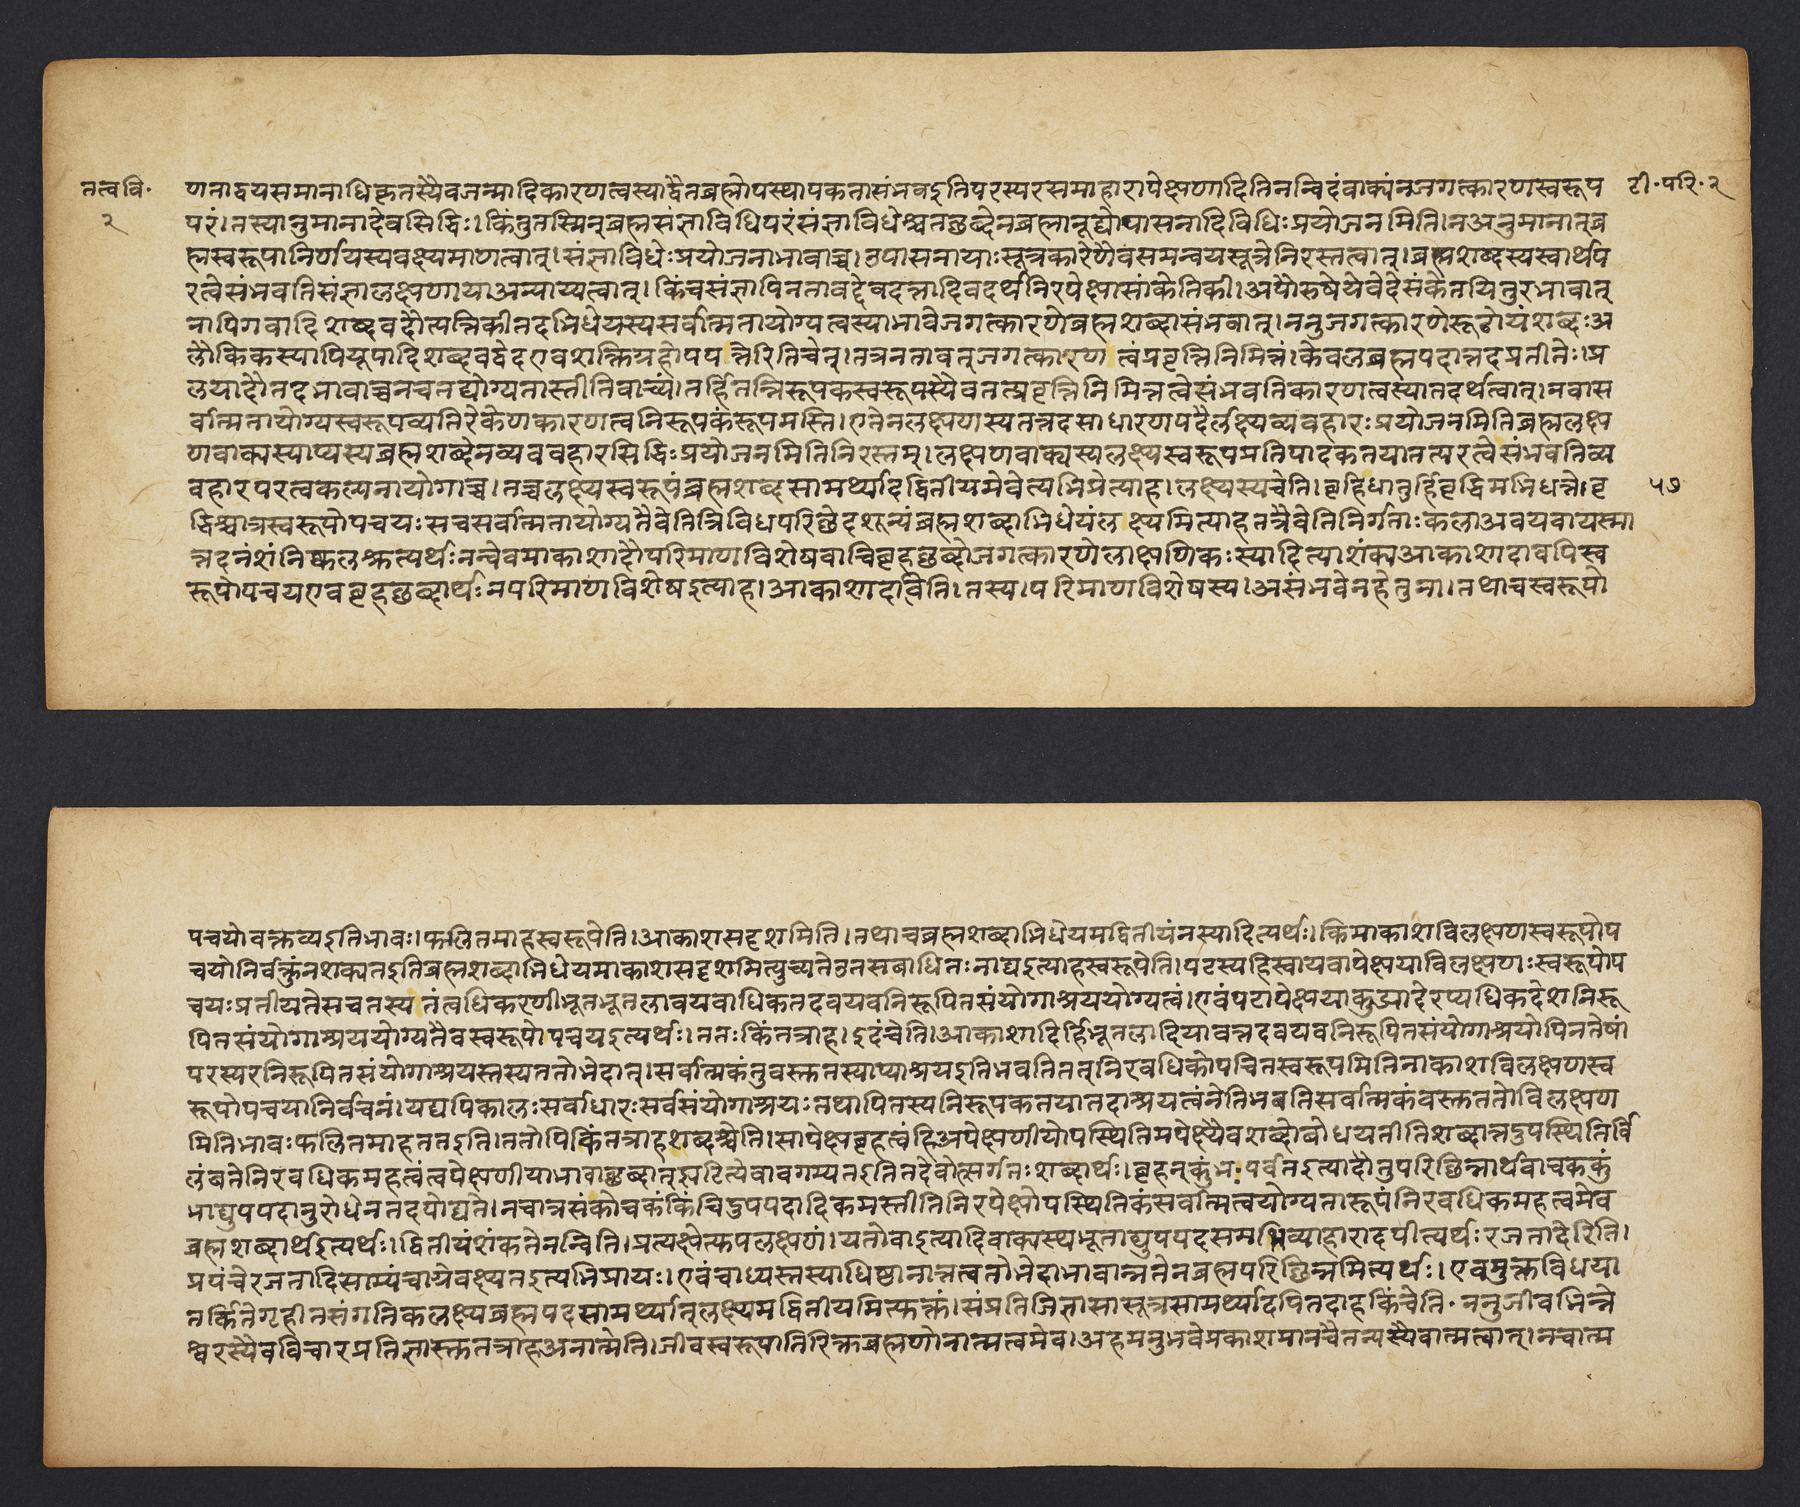 तत्ववि॰
२
टी॰परि॰२
५७
णताद्वयसमानाधिकृतस्यैवजन्मादिकारणत्वस्याद्वैतब्रह्मोपस्थापकतासंभवइतिपरस्परसमाहारापेक्षणादितिनन्विदंवाक्यंनजगत्कारणस्वरूप
परं।तस्यानुमानादेवसिद्धिः।किंतुतस्मिन्ब्रह्मसंज्ञाविधिपरंसंज्ञाविधेश्चतछब्देनब्रह्मानूद्योपासनादिविधिःप्रयोजनमिति।नअनुमानात्ब्र
ह्मस्वरूपानिर्णयस्यवक्ष्यमाणत्वात्।संज्ञाविधेःप्रयोजनाभावाच्च।उपासनायाःसूत्रकारेणैवंसमन्वयसूत्रेनिरस्तत्वात्।ब्रह्मशब्दस्यस्वार्थप
रत्वेसंभवतिसंज्ञालक्षणायाअन्याय्यत्वात्।किंचसंज्ञापिनतावद्देवदत्तादिवदर्थनिरपेक्षासांकेतिकी।अपौरुषेयेवेदेसंकेतयितुरभावात्
नापिगवादिशब्दवदौत्पत्तिकीतदभिधेयस्यसर्वात्मतायोग्यत्वस्याभावेजगत्कारणेब्रह्मशब्दासंभवात्।ननुजगत्कारणेरूढोयंशब्दःअ
लौकिकस्यापियूपादिशब्दवद्वेदएवशक्तिग्रहोपपत्तेरितिचेत्।तत्रनतावत्जगत्कारणत्वंप्रवृत्तिनिमित्तं।केवलब्रह्मपदात्तदप्रतीतेः।प्र
लयादौतदभावाच्चनचतद्योग्यतास्तीतिवाच्यं।तर्हितन्निरूपकस्वरूपस्यैवतत्प्रवृत्तिनिमित्तत्वेसंभवतिकारणत्वस्यातदर्थत्वात्।नचास
र्वात्मतायोग्यस्वरूपव्यतिरेकेणकारणत्वनिरूपकंरूपमस्ति।एतेनलक्षणस्यतत्तदसाधारणपदैर्लक्ष्यव्यवहारःप्रयोजनमितिब्रह्मलक्ष
णवाक्यस्याप्यस्यब्रह्मशब्देनव्यववहारसिद्धिःप्रयोजनमितिनिरस्तम्।लक्षणवाक्यस्यलक्ष्यस्वरूपप्रतिपादकतयातत्परत्वेसंभवतिव्य
वहारपरत्वकल्पनायोगाच्च।तच्चलक्ष्यस्वरूपंब्रह्मशब्दसामर्थ्यादद्वितीयमेवेत्यभिप्रेत्याह।लक्ष्यस्यचेति।वृहिधातुर्हिवृद्धिमभिधत्ते।वृ
द्धिश्चात्रस्वरूपोपचयःसचसर्वात्मतायोग्यतैवेतित्रिविधपरिछेदशून्यंब्रह्मशब्दाभिधेयंलक्ष्यमित्याहतत्रैवेतिनिर्गताःकलाअवयवायस्मा
त्तदनंशंनिष्कलक्तत्यर्थःनन्वेवमाकाशादौपरिमाणविशेषवाचिवृहछब्दोजगत्कारणेलाक्षणिकःस्यादित्याशंक्यआकाशादावपिस्व
रूपोपचयएववृहछब्दार्थःनपरिमाणविशेषइत्याह।आकाशादावेति।तस्य।परिमाणविशेषस्य।असंभवेनहेतुना।तथाचस्वरूपो
पचयोवक्तव्यइतिभावः।फलितमाहस्वरूपेति।आकाशसदृशमिति।तथाचब्रह्मशब्दाभिधेयमद्वितीयंनस्यादित्यर्थः।किमाकाशविलक्षणस्वरूपोप
चयोनिर्वक्तुंनशक्यतइतिब्रह्मशब्दाभिधेयमाकाशसदृशमित्युच्यतेउतसबाधितःनाद्यइत्याहस्वरूपेति।पटस्यहिस्वावयवापेक्षयाविलक्षणःस्वरूपोप
चयःप्रतीयतेसचतस्यतंत्वधिकरणीभूतभूतलावयवाधिकतदवयवनिरूपितसंयोगाश्रययोग्यत्वं।एवंपटापेक्षयाकुड्यादेरप्यधिकदेशनिरू
पितसंयोगाश्रययोग्यतैवस्वरूपोपचयइत्यर्थः।ततःकिंतत्राह।इदंचेति।आकाशादिर्हिभूतलादियावत्तदवयवनिरूपितसंयोगाश्रयोपिनतेषां
परस्परनिरूपितसंयोगाश्रयस्तस्यततोभेदात्।सर्वात्मकंतुवस्तुतस्याप्याश्रयइतिभवतितत्निरवधिकोपचितस्वरूपमितिनाकाशविलक्षणस्व
रूपोपचयानिर्वचनं।यद्यपिकालःसर्वाधारःसर्वसंयोगाश्रयःतथापितस्यनिरूपकतयातदाश्रयत्वंनेतिभवतिसर्वात्मकंवस्तुततोविलक्षण
मितिभावःफलितमाहततइति।ततोपिकिंतत्राहशब्दश्चेति।सापेक्षवृहत्वंहिअपेक्षणीयोपस्थितिमपेक्ष्यैवशब्दोबोधयतीतिशब्दात्तदुपस्थितिर्वि
लंबतेनिरवधिकमहत्वंत्वपेक्षणीयाभावाच्छब्दात्झटित्येवावगम्यतइतितदेवोत्सर्गतःशब्दार्थः।वृहत्कुंभःपर्वतइत्यादौतुपरिछिन्नार्थवाचककुं
भाद्युपपदानुरोधेनतदपोद्यते।नचात्रसंकोचकंकिंचिदुपपदादिकमस्तीतिनिरपेक्षोपस्थितिकंसर्वात्मत्वयोग्यतारूपंनिरवधिकमहत्वमेव
ब्रह्मशब्दार्थइत्यर्थः।द्वितीयंशंकतेनन्विति।प्रत्यक्षेत्युपलक्षणं।यतोवाइत्यादिवाक्यस्थभूताद्युपपदसमभिव्याहारादपीत्यर्थःरजतादेरिति।
प्रपंचेरजतादिसाम्यंचाग्रेवक्ष्यतइत्यभिप्रायः।एवंचाध्यस्तस्याधिष्ठानात्तत्वतोभेदाभावान्नतेनब्रह्मपरिछिन्नमित्यर्थः।एवमुक्तविधया
तर्कितेगृहीतसंगतिकलक्ष्यब्रह्मपदसामर्थ्यात्लक्ष्यमद्वितीयमित्युक्तं।संप्रतिजिज्ञासासूत्रसामर्थ्यादपितदाहकिंचेति॰ननुजीवभिन्ने
श्वरस्यैवविचारप्रतिज्ञास्तुतत्राहअनात्मेति।जीवस्वरूपातिरिक्तब्रह्मणोनात्मत्वमेव।अहमनुभवेप्रकाशमानचैतन्यस्यैवात्मत्वात्।नचात्म